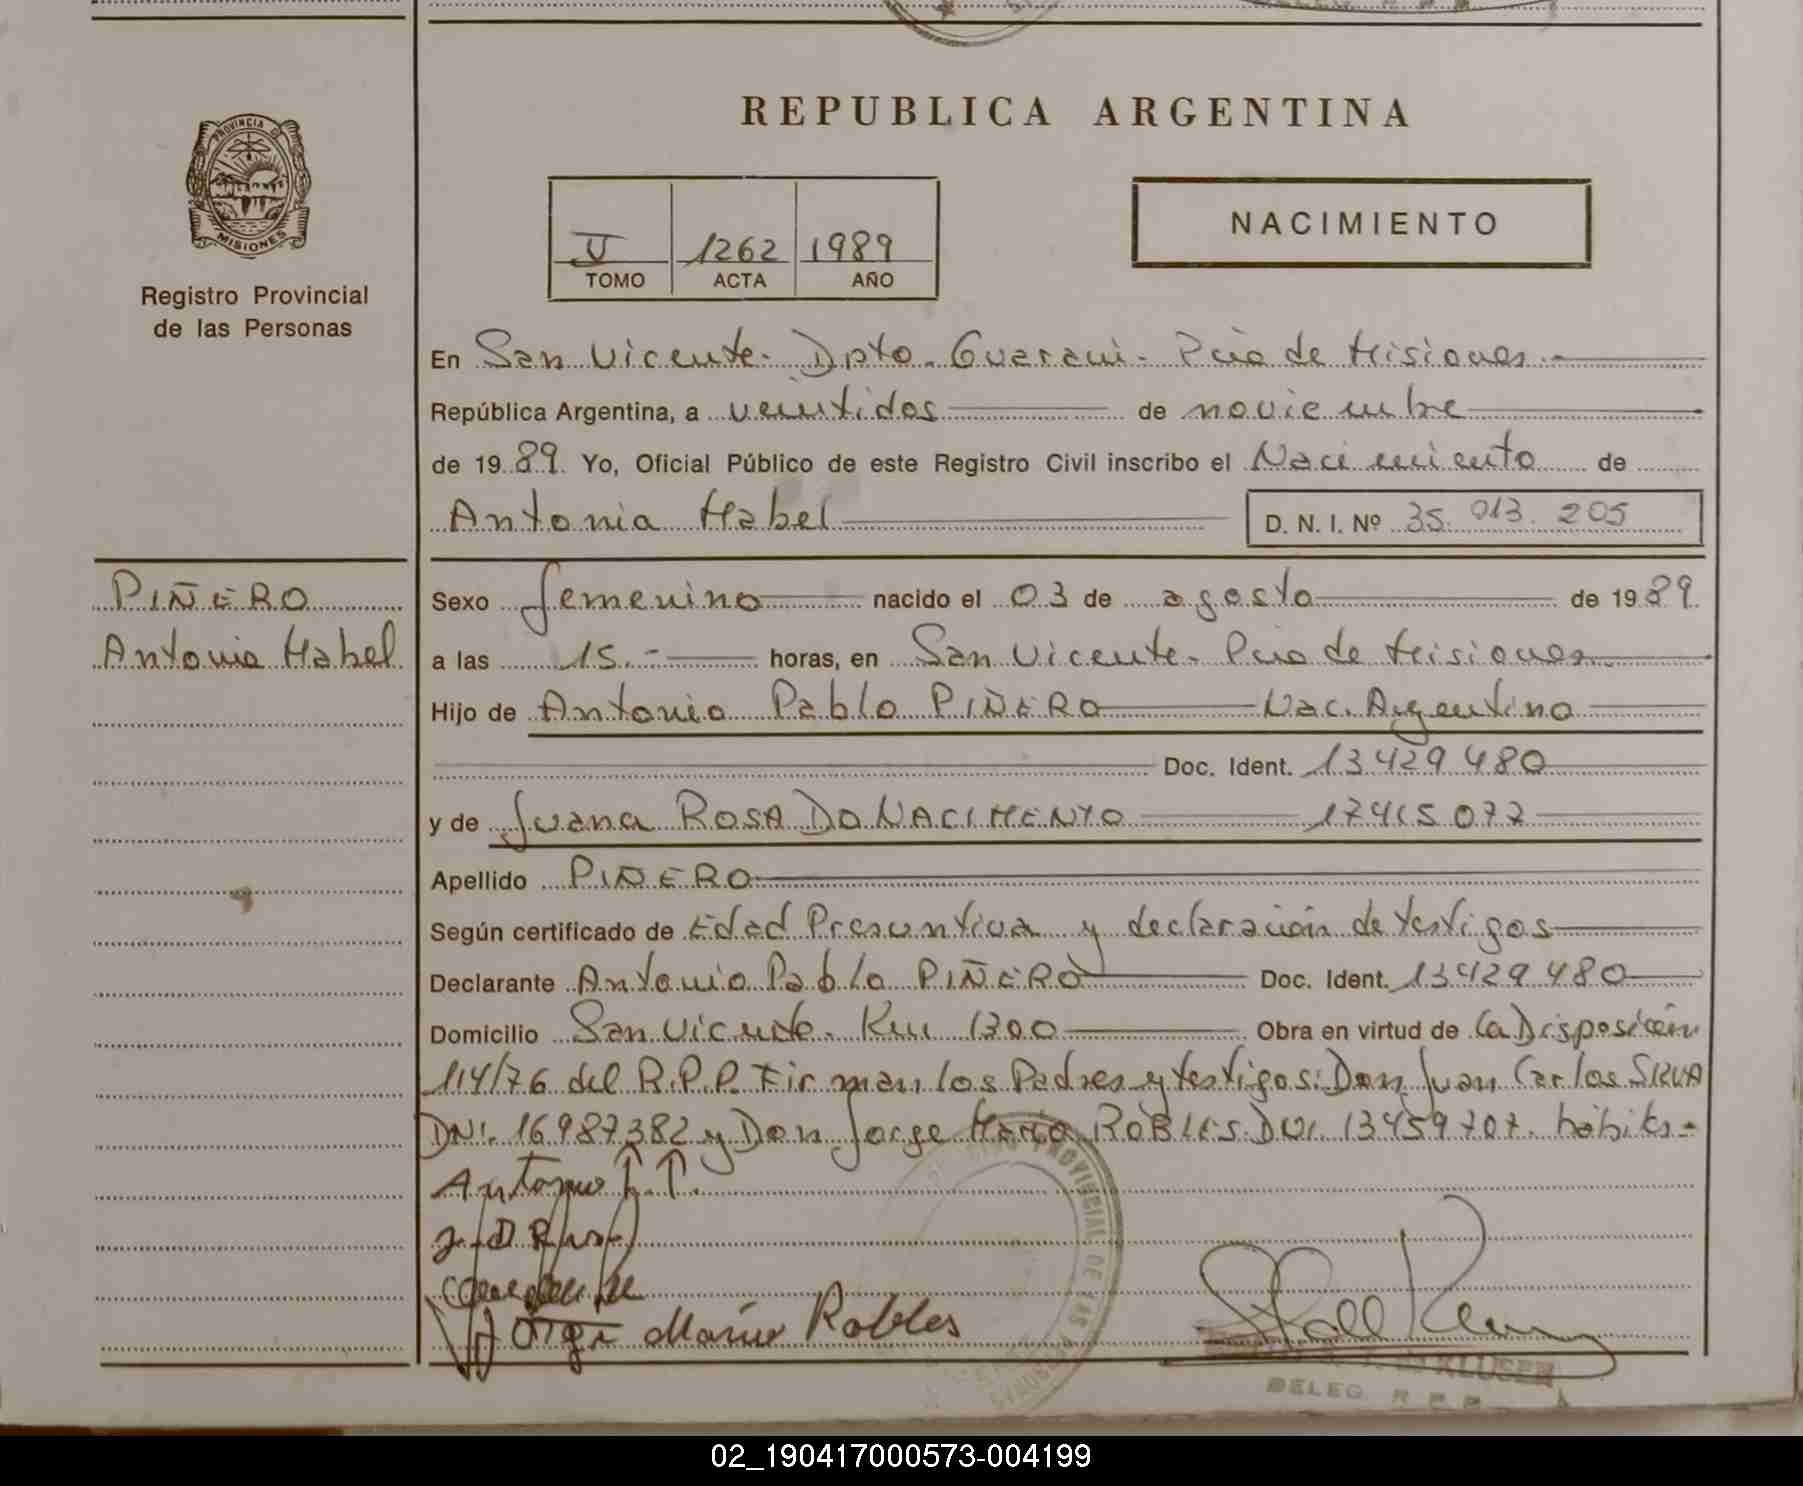 REPUBLICA ARGENTINA
PROVINCIA DE
MISIONES
Registro Provincial
de las Personas
V 1262 1989
TOMO ACTA AÑO
NACIMIENTO
En San Vicente. Dpto. Guarani. Pcia de Misiones.-
República Argentina, a veintidos de noviembre
de 1989. Yo, Oficial Público de este Registro Civil inscribo el Nacimiento de
Antonia Mabel
D. N. I. Nº 35.013.205
PIÑERO
Antonia Mabel
Sexo femenino nacido el 03 de agosto de 1989.
a las 15.- horas, en San Vicente. Pcia de Misiones.
Hijo de Antonio Pablo PIÑERO Nac. Argentino
Doc. Ident. 13429480
y de Juana ROSA DO NACIMENTO 17415077
Apellido PIÑERO
Según certificado de Edad Presuntiva y declaración de testigos
Declarante Antonio Pablo PIÑERO Doc. Ident. 13429480
Domicilio San Vicente. Km 1300 Obra en virtud de la Disposición
114/76 del R.P.P. Firman los Padres y testigos: Don Juan Carlos SILVA
DNI. 16987382 y Don Jorge Mario ROBLES DNI. 13459707. hábiles.-
Antonio P. P.
Jorge Mario Robles
PROVINCIAL DE LAS PERSONAS
DELEG. R. P. P.
02_190417000573-004199